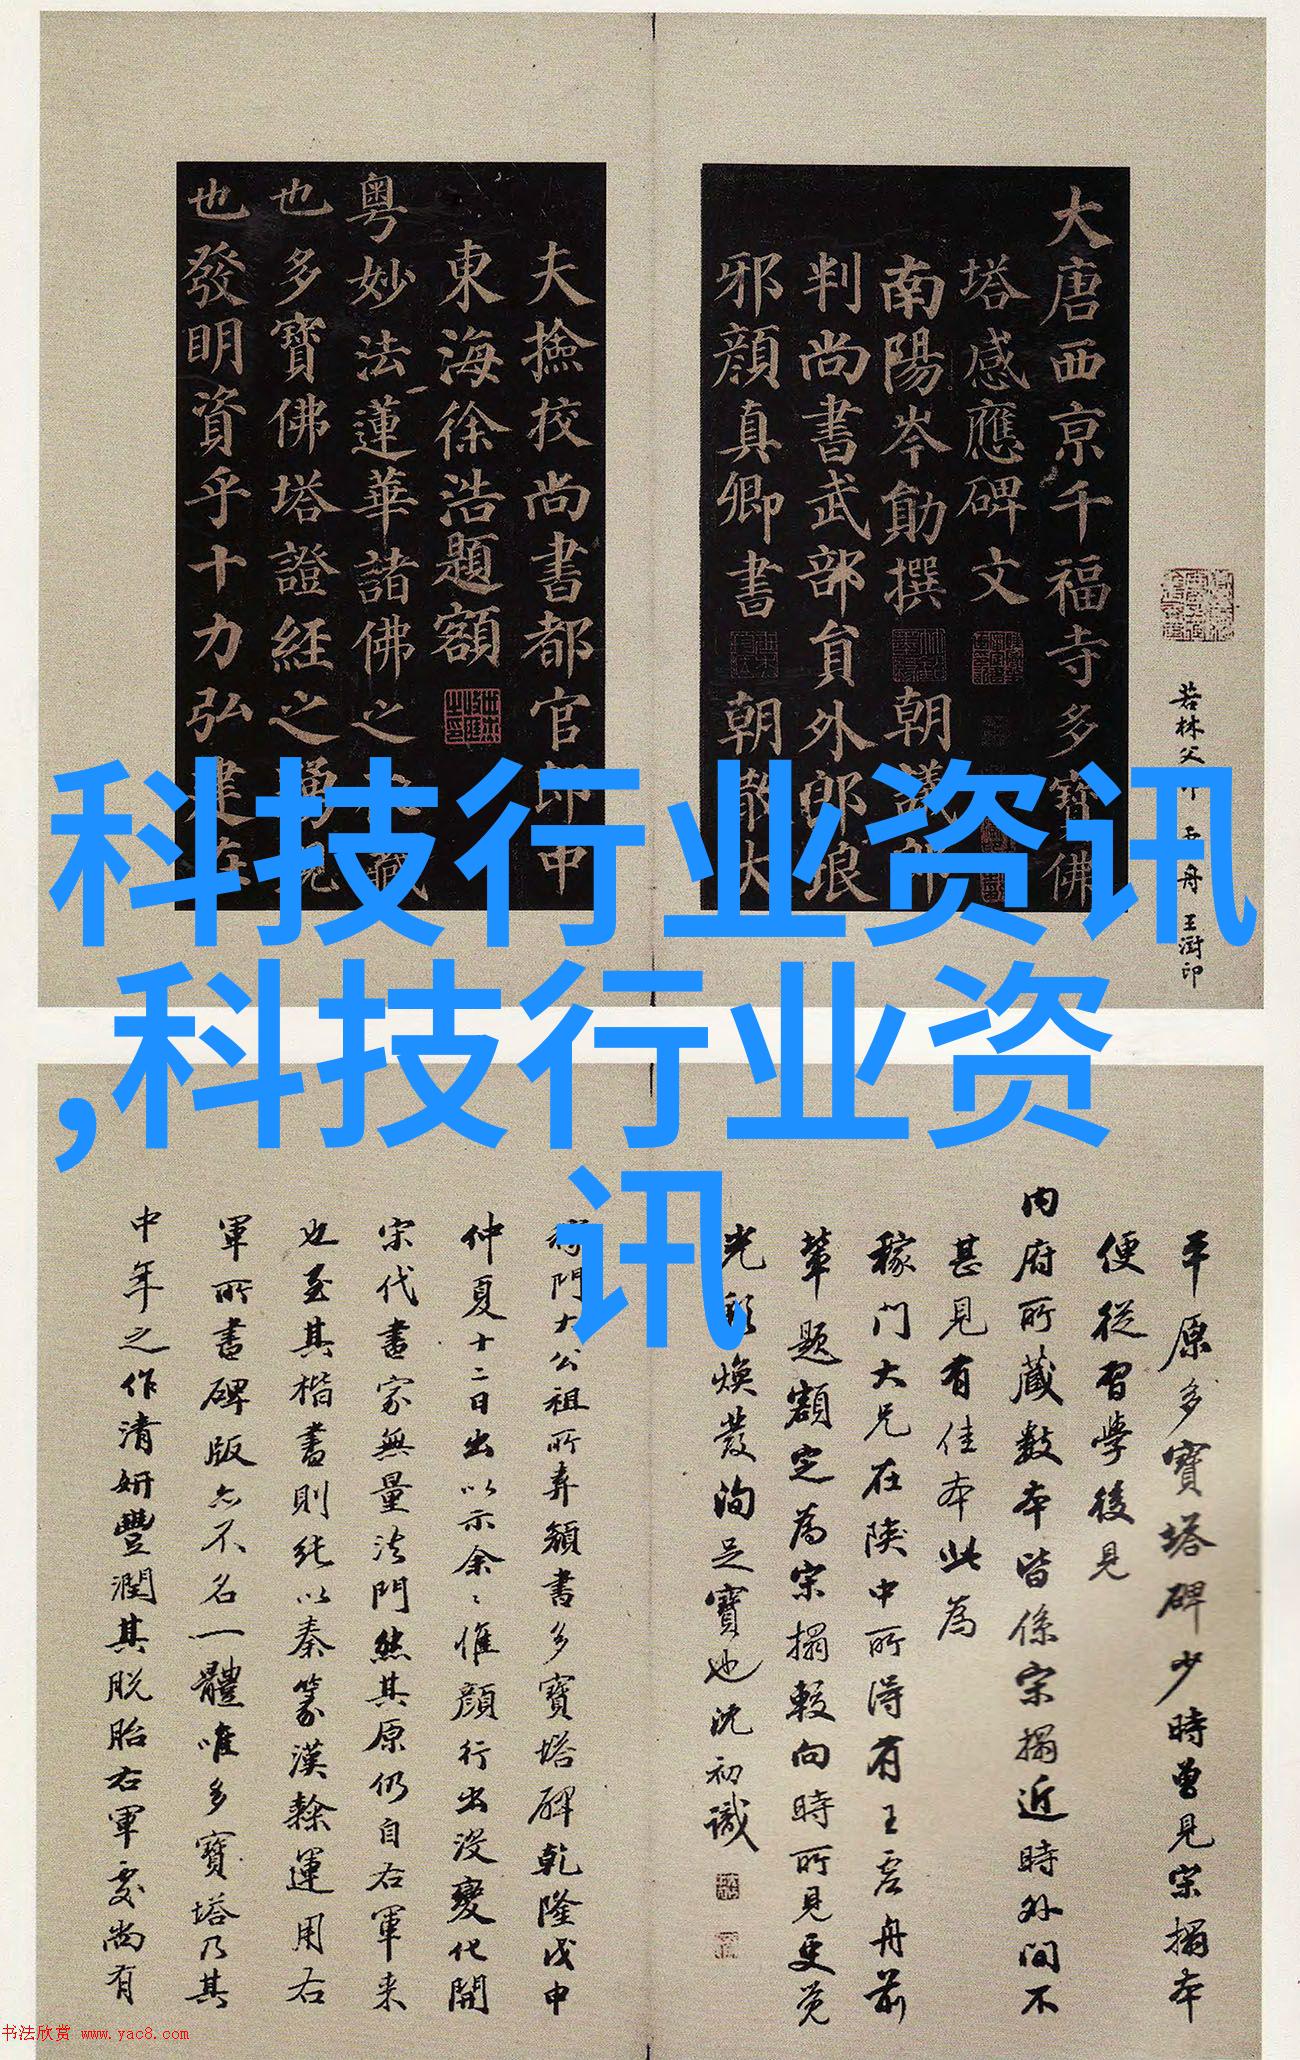 大唐西京千福寺多寶佛
塔感應碑文
南陽岑勛撰 朝議郎
判尚書武部貟外郎琅
邪顔真卿書 朝散大
夫撿挍尚書都官郎中
東海徐浩題額
粵妙法蓮華諸佛之秘藏
也多寶佛塔證經之踴現
也發明資乎十力弘建在
若林父印 舟 王澍印
科技行业资讯
,科技行业资
讯
平原多寶塔碑少時曾見宋搨本
便從習學後見
内府所藏數本皆係宋搨近時外間不
甚見有佳本此為
稼门大兄在陝中所得有王虚舟前
輩題額定為宋搨較向時所見更覚
光彩煥發洵足寶也沈初識
稼門大公祖所弆顔書多寶塔碑乾隆戊申
仲夏十二日出以示余〻惟顔行出没變化開
宋代書家無量法門然其原仍自右軍来
也至其楷書則純以秦篆漢隸運用右
軍所書碑版亦不名一體唯多寶塔乃其
中年之作清妍豐潤其脱胎右軍處尚有
书法欣赏 www.yac8.com